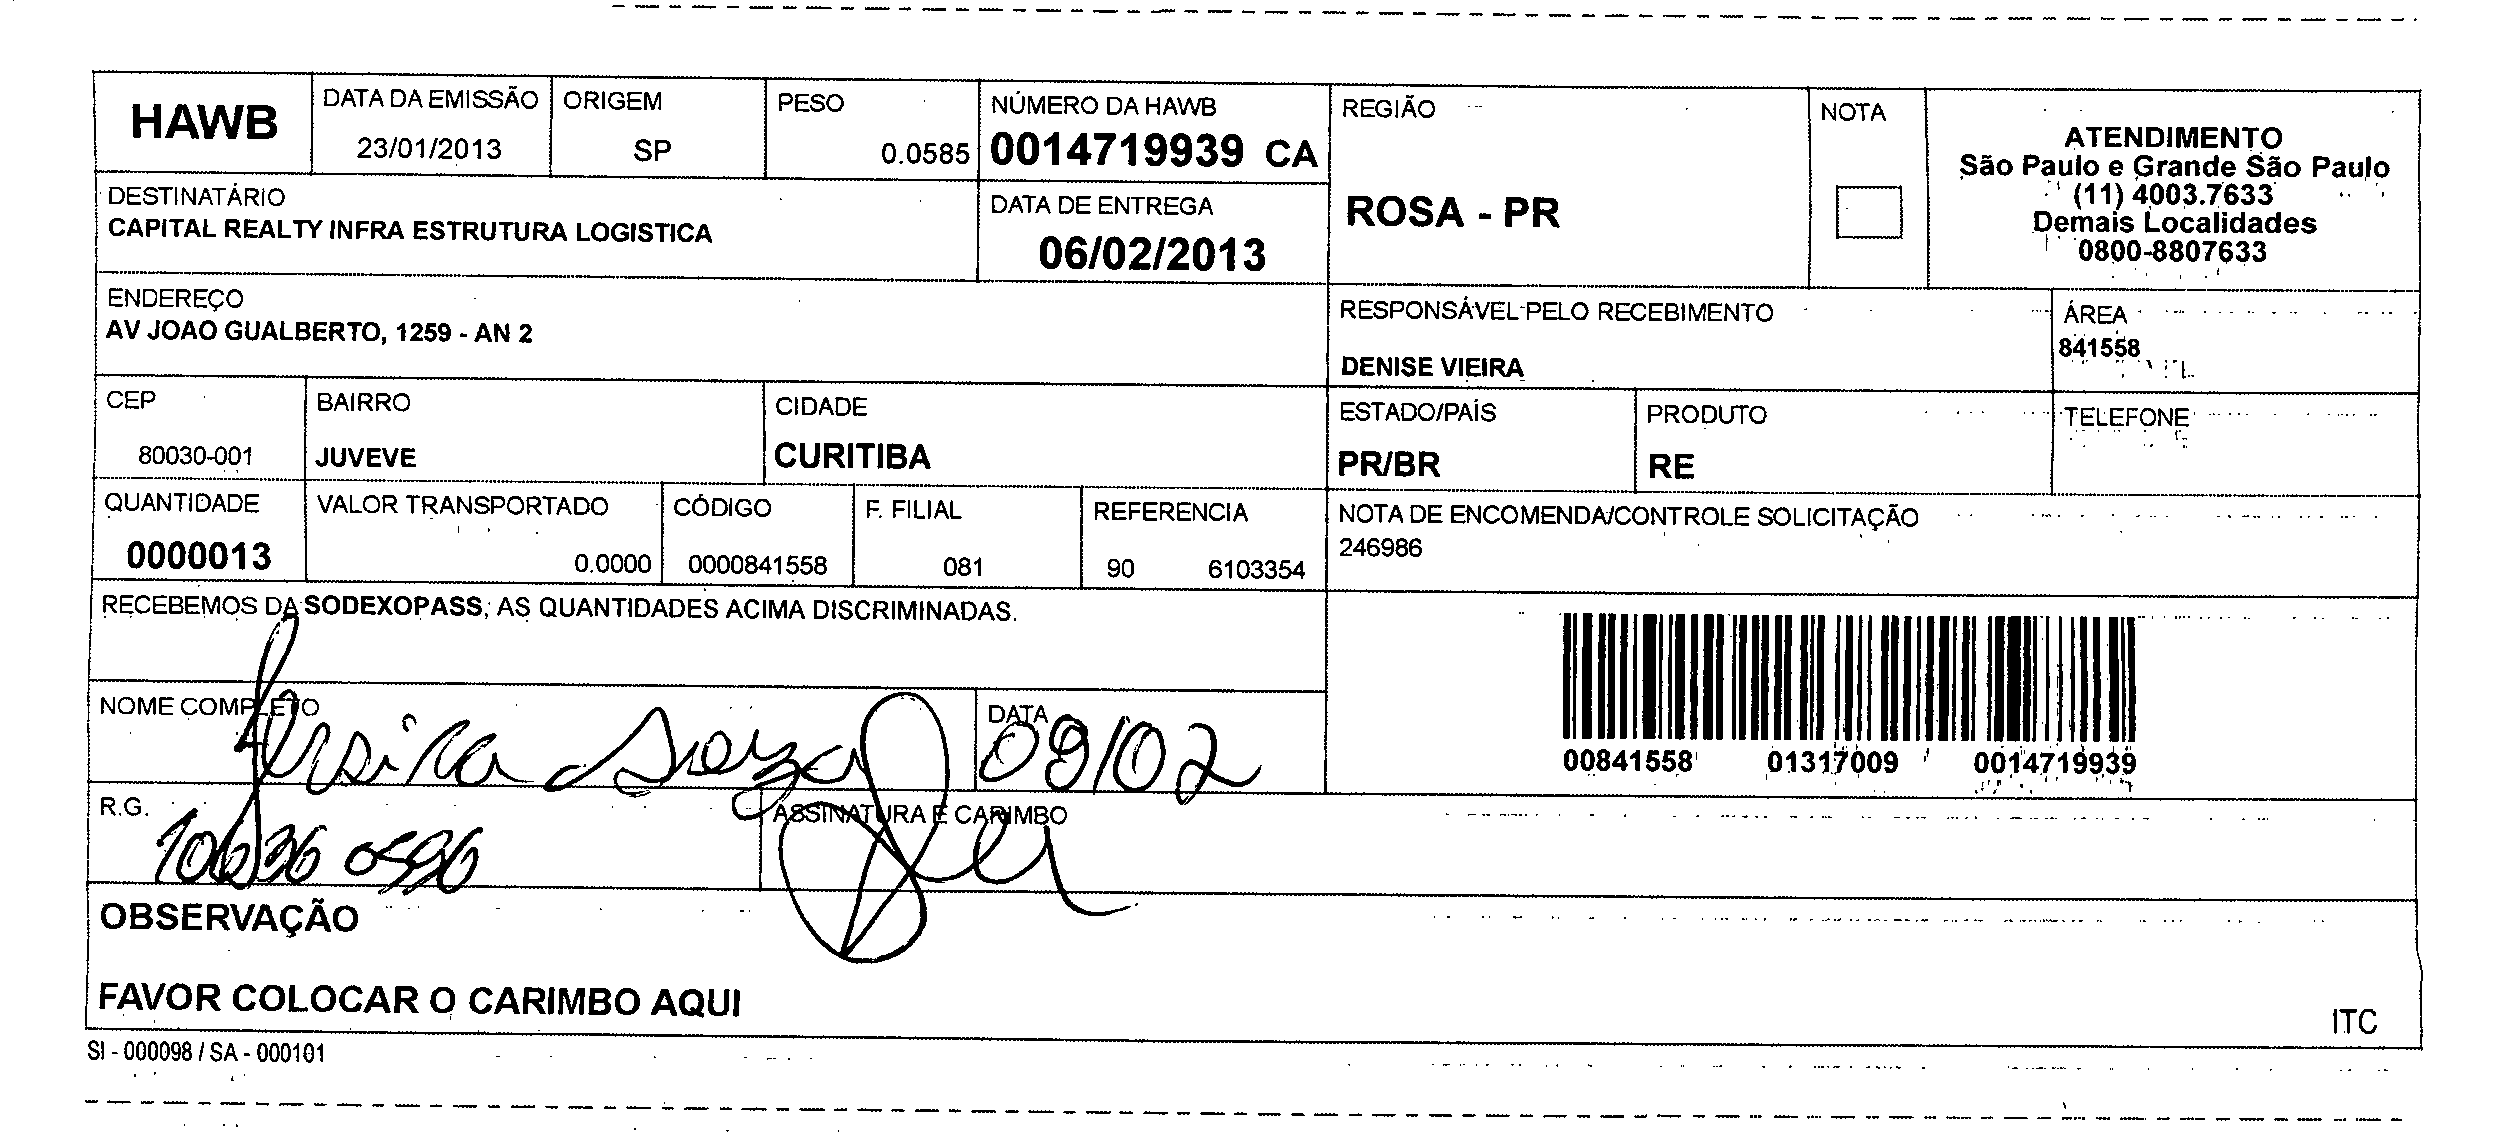 HAWB
DATA DA EMISSÃO
23/01/2013
ORIGEM
SP
PESO
0.0585
NÚMERO DA HAWB
0014719939 CA
REGIÃO
ROSA - PR
NOTA
ATENDIMENTO
São Paulo e Grande São Paulo
(11) 4003.7633
Demais Localidades
0800-8807633
DESTINATÁRIO
CAPITAL REALTY INFRA ESTRUTURA LOGISTICA
DATA DE ENTREGA
06/02/2013
ENDEREÇO
AV JOAO GUALBERTO, 1259 - AN 2
RESPONSÁVEL PELO RECEBIMENTO
DENISE VIEIRA
ÁREA
841558
CEP
80030-001
BAIRRO
JUVEVE
CIDADE
CURITIBA
ESTADO/PAÍS
PR/BR
PRODUTO
RE
TELEFONE
QUANTIDADE
0000013
VALOR TRANSPORTADO
0.0000
CÓDIGO
0000841558
F. FILIAL
081
REFERENCIA
90 6103354
NOTA DE ENCOMENDA/CONTROLE SOLICITAÇÃO
246986
RECEBEMOS DA SODEXOPASS, AS QUANTIDADES ACIMA DISCRIMINADAS.
00841558 01317009 0014719939
NOME COMPLETO
Souza
DATA
R.G.
ASSINATURA E CARIMBO
OBSERVAÇÃO
FAVOR COLOCAR O CARIMBO AQUI
ITC
SI - 000098 / SA - 000101